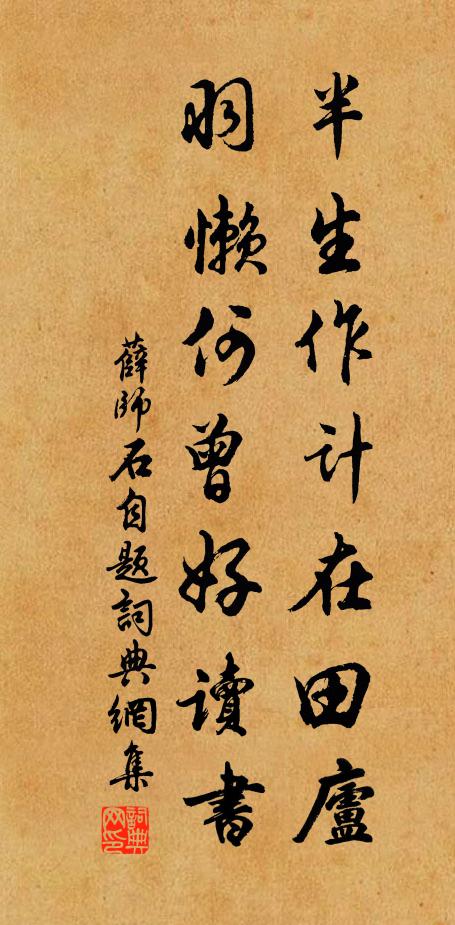 半生作計在田廬
懶何曾好讀書
薛師石自題詞典網集
詞典
网印